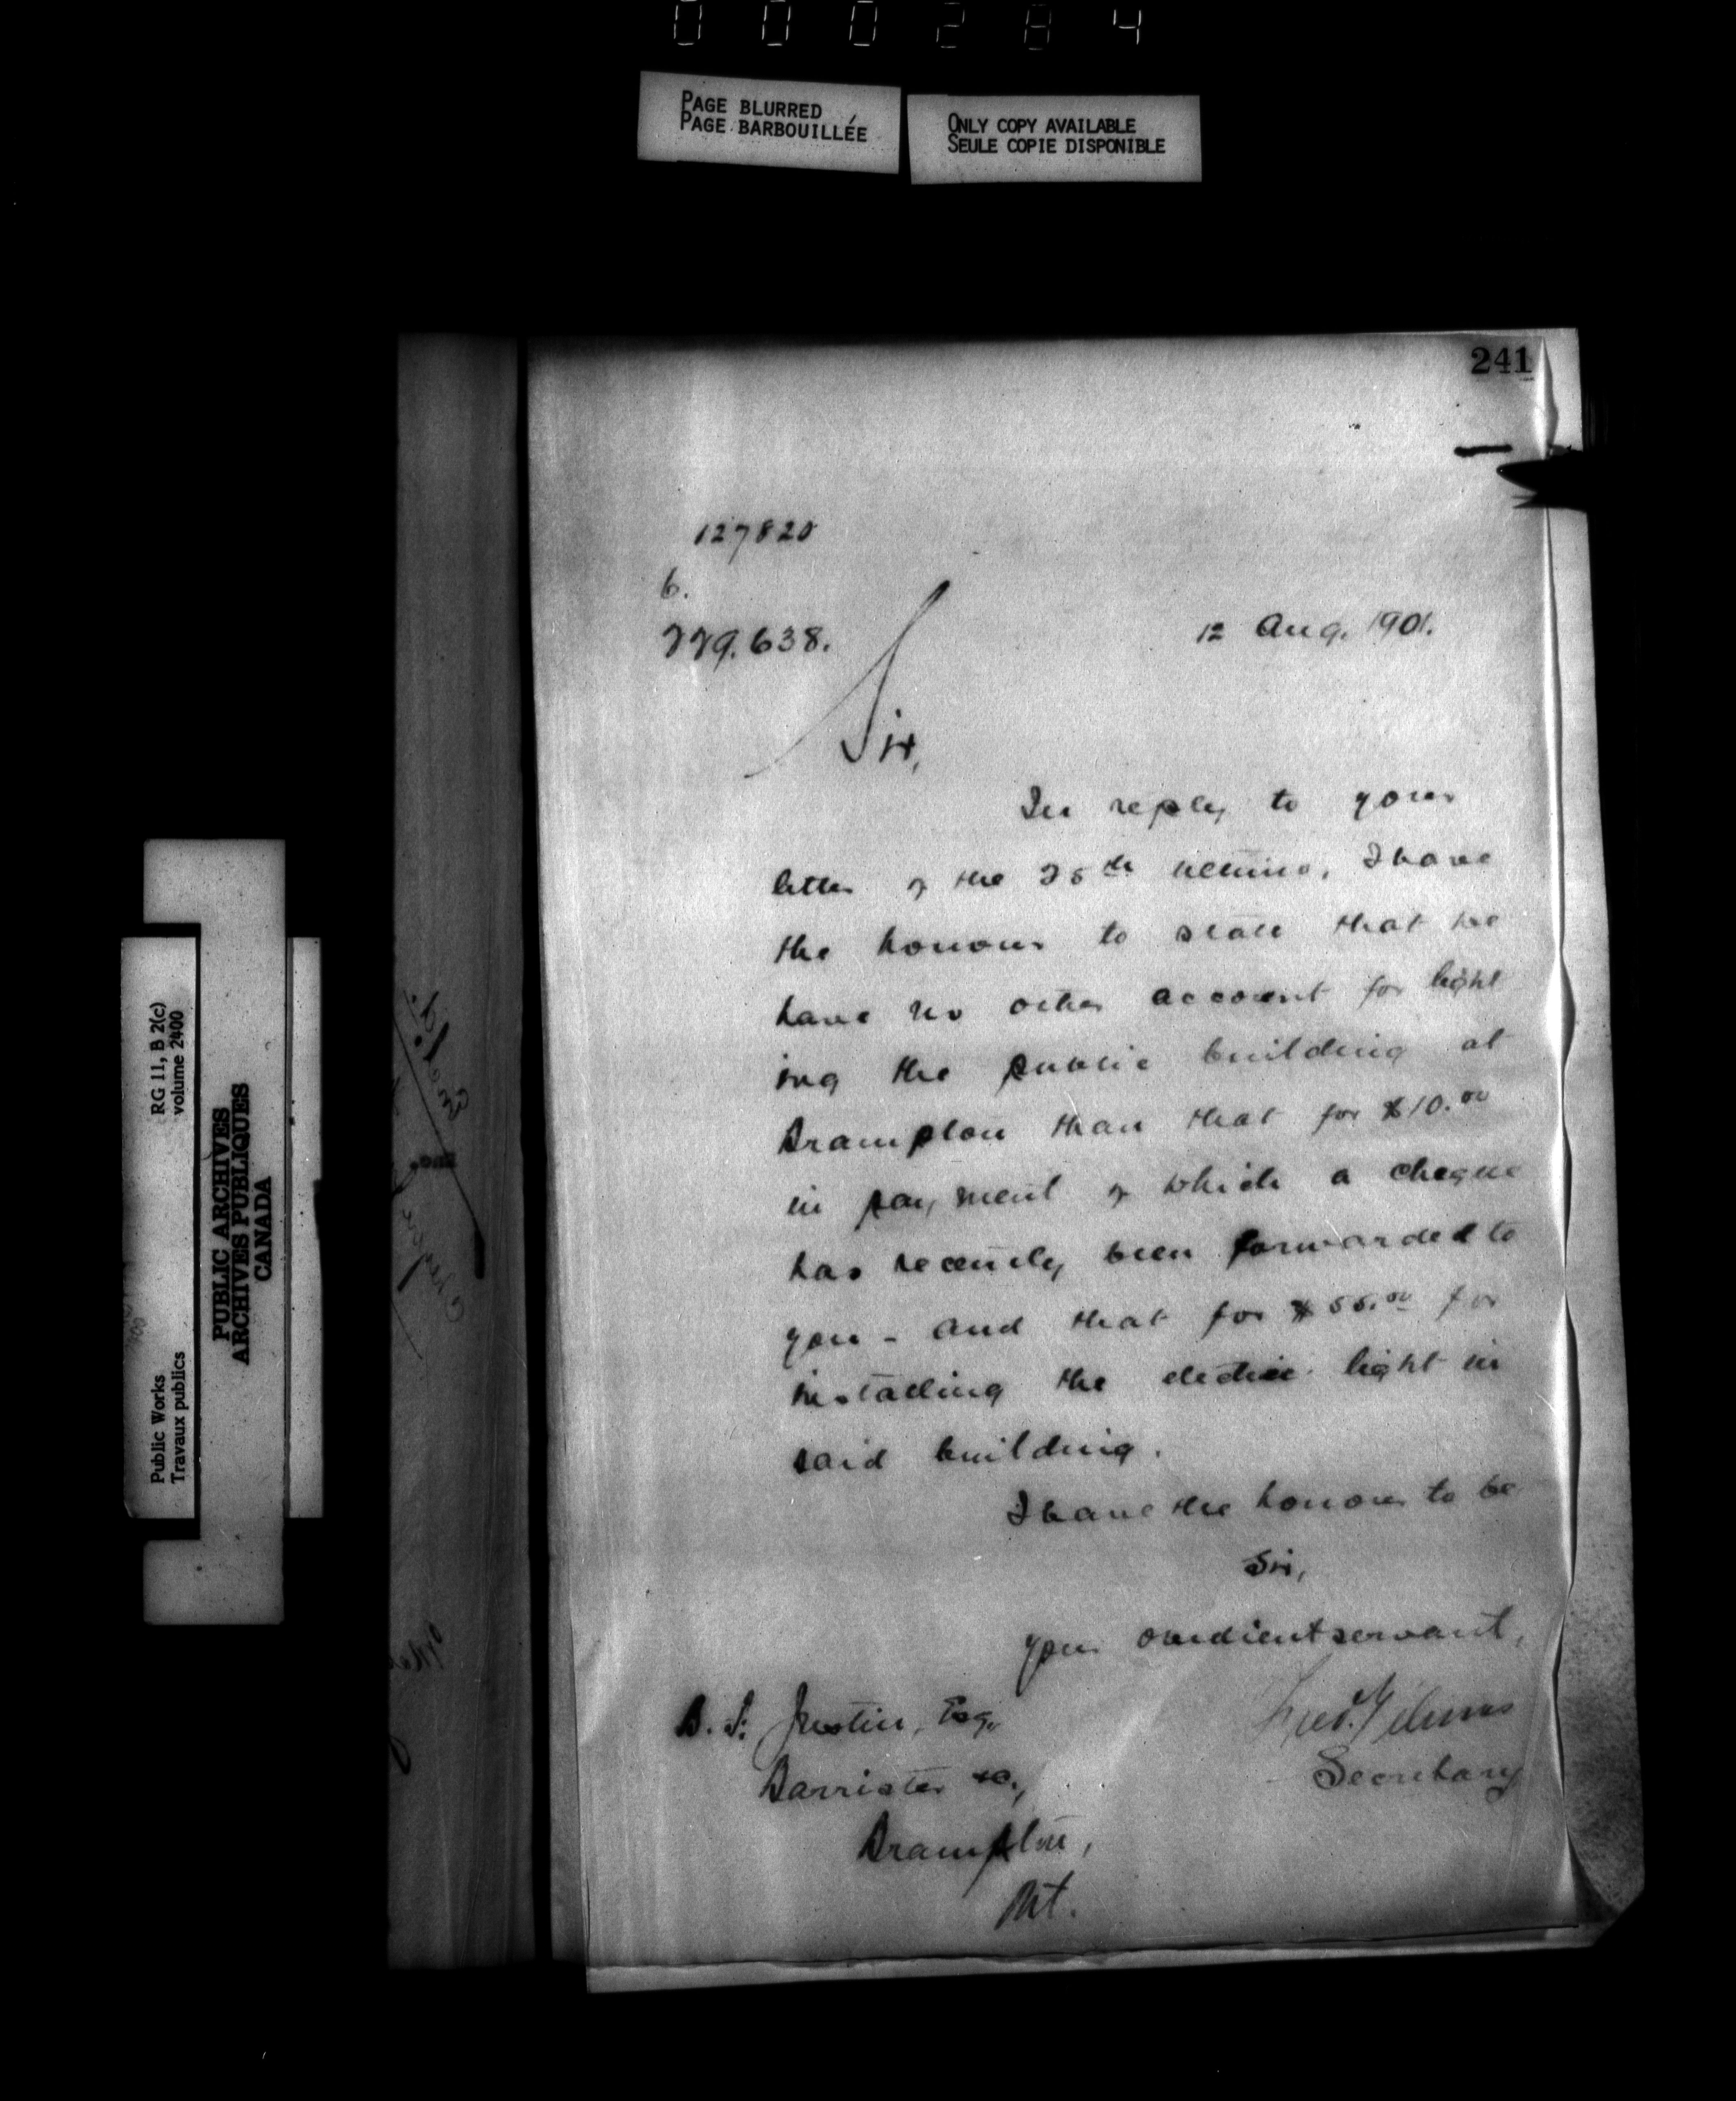 000284
PAGE BLURRED
PAGE BARBOUILLÉE
ONLY COPY AVAILABLE
SEULE COPIE DISPONIBLE
241
127820
6.
229.638.
12 Aug. 1901.
Sir,
In reply to your
letter of the 25th ultimo, I have
the honour to state that we
have no other account for light
ing the public building at
Brampton than that for $10.00
in payment of which a cheque
has recently been forwarded to
you - and that for $55.00 for
installing the electric light in
said building.
I have the honour to be
Sir,
your obedient servant,
B. F. Justin, Esq.
Fred. Gélinas
Barrister &c.,
Secretary
Brampton,
Ont.
RG 11, B 2(c)
volume 2400
Public Works
Travaux publics
PUBLIC ARCHIVES
ARCHIVES PUBLIQUES
CANADA